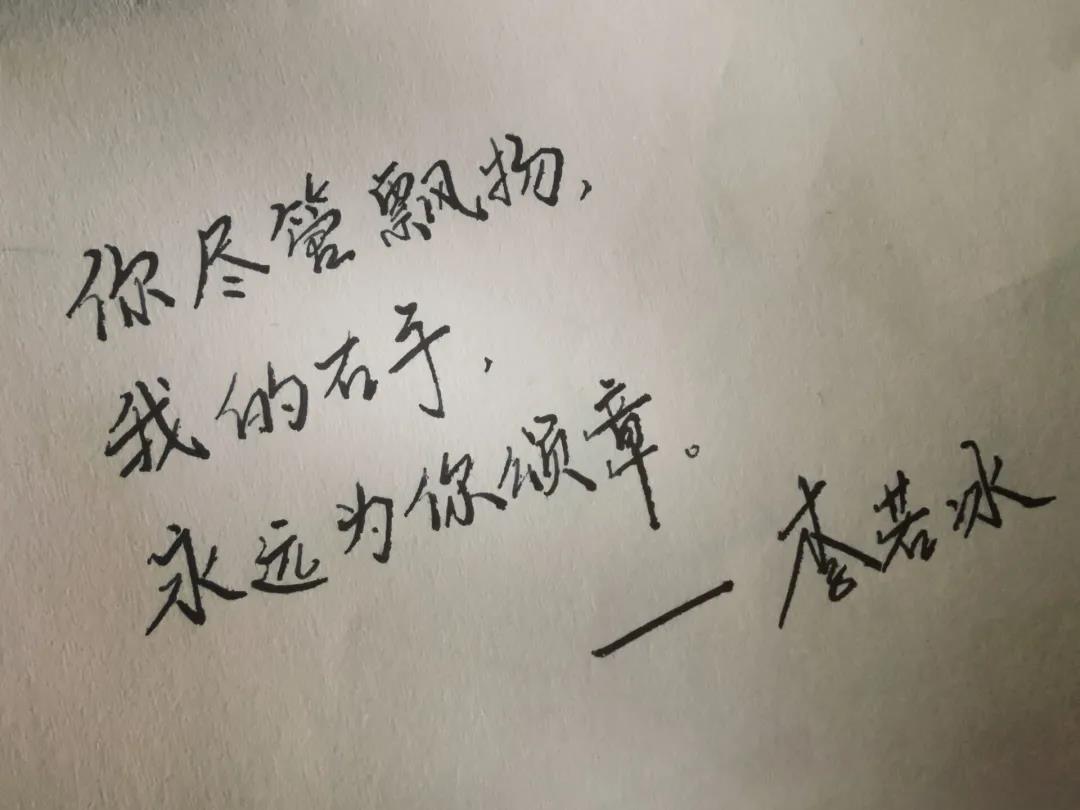 你尽管飘扬,
我的右手,
永远为你颂章。
— 李若冰